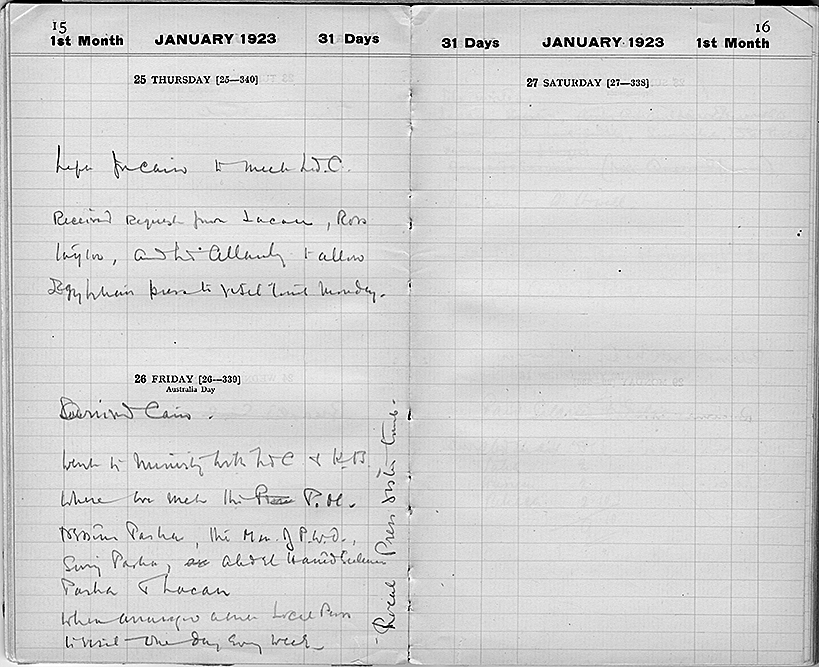 15
1st Month JANUARY 1923 31 Days
25 THURSDAY [25—340]
Left for Cairo to meet Ld. C.
Received request from Lacau, Ross
Taylor, and Ld. Allenby to allow
Egyptian press to visit tomb Monday.
26 FRIDAY [26—339]
Australia Day
Arrived Cairo.
Went to Ministry with Ld C & R.B.
where we met the P.M.
Pasha, the Min. of P.W.D.,
Pasha, Abd El Hamid Suleman
Pasha & Lacau
When arranged Local Press
to visit one day every week
- Local Press visit to Tomb -
16
31 Days JANUARY 1923 1st Month
27 SATURDAY [27—338]